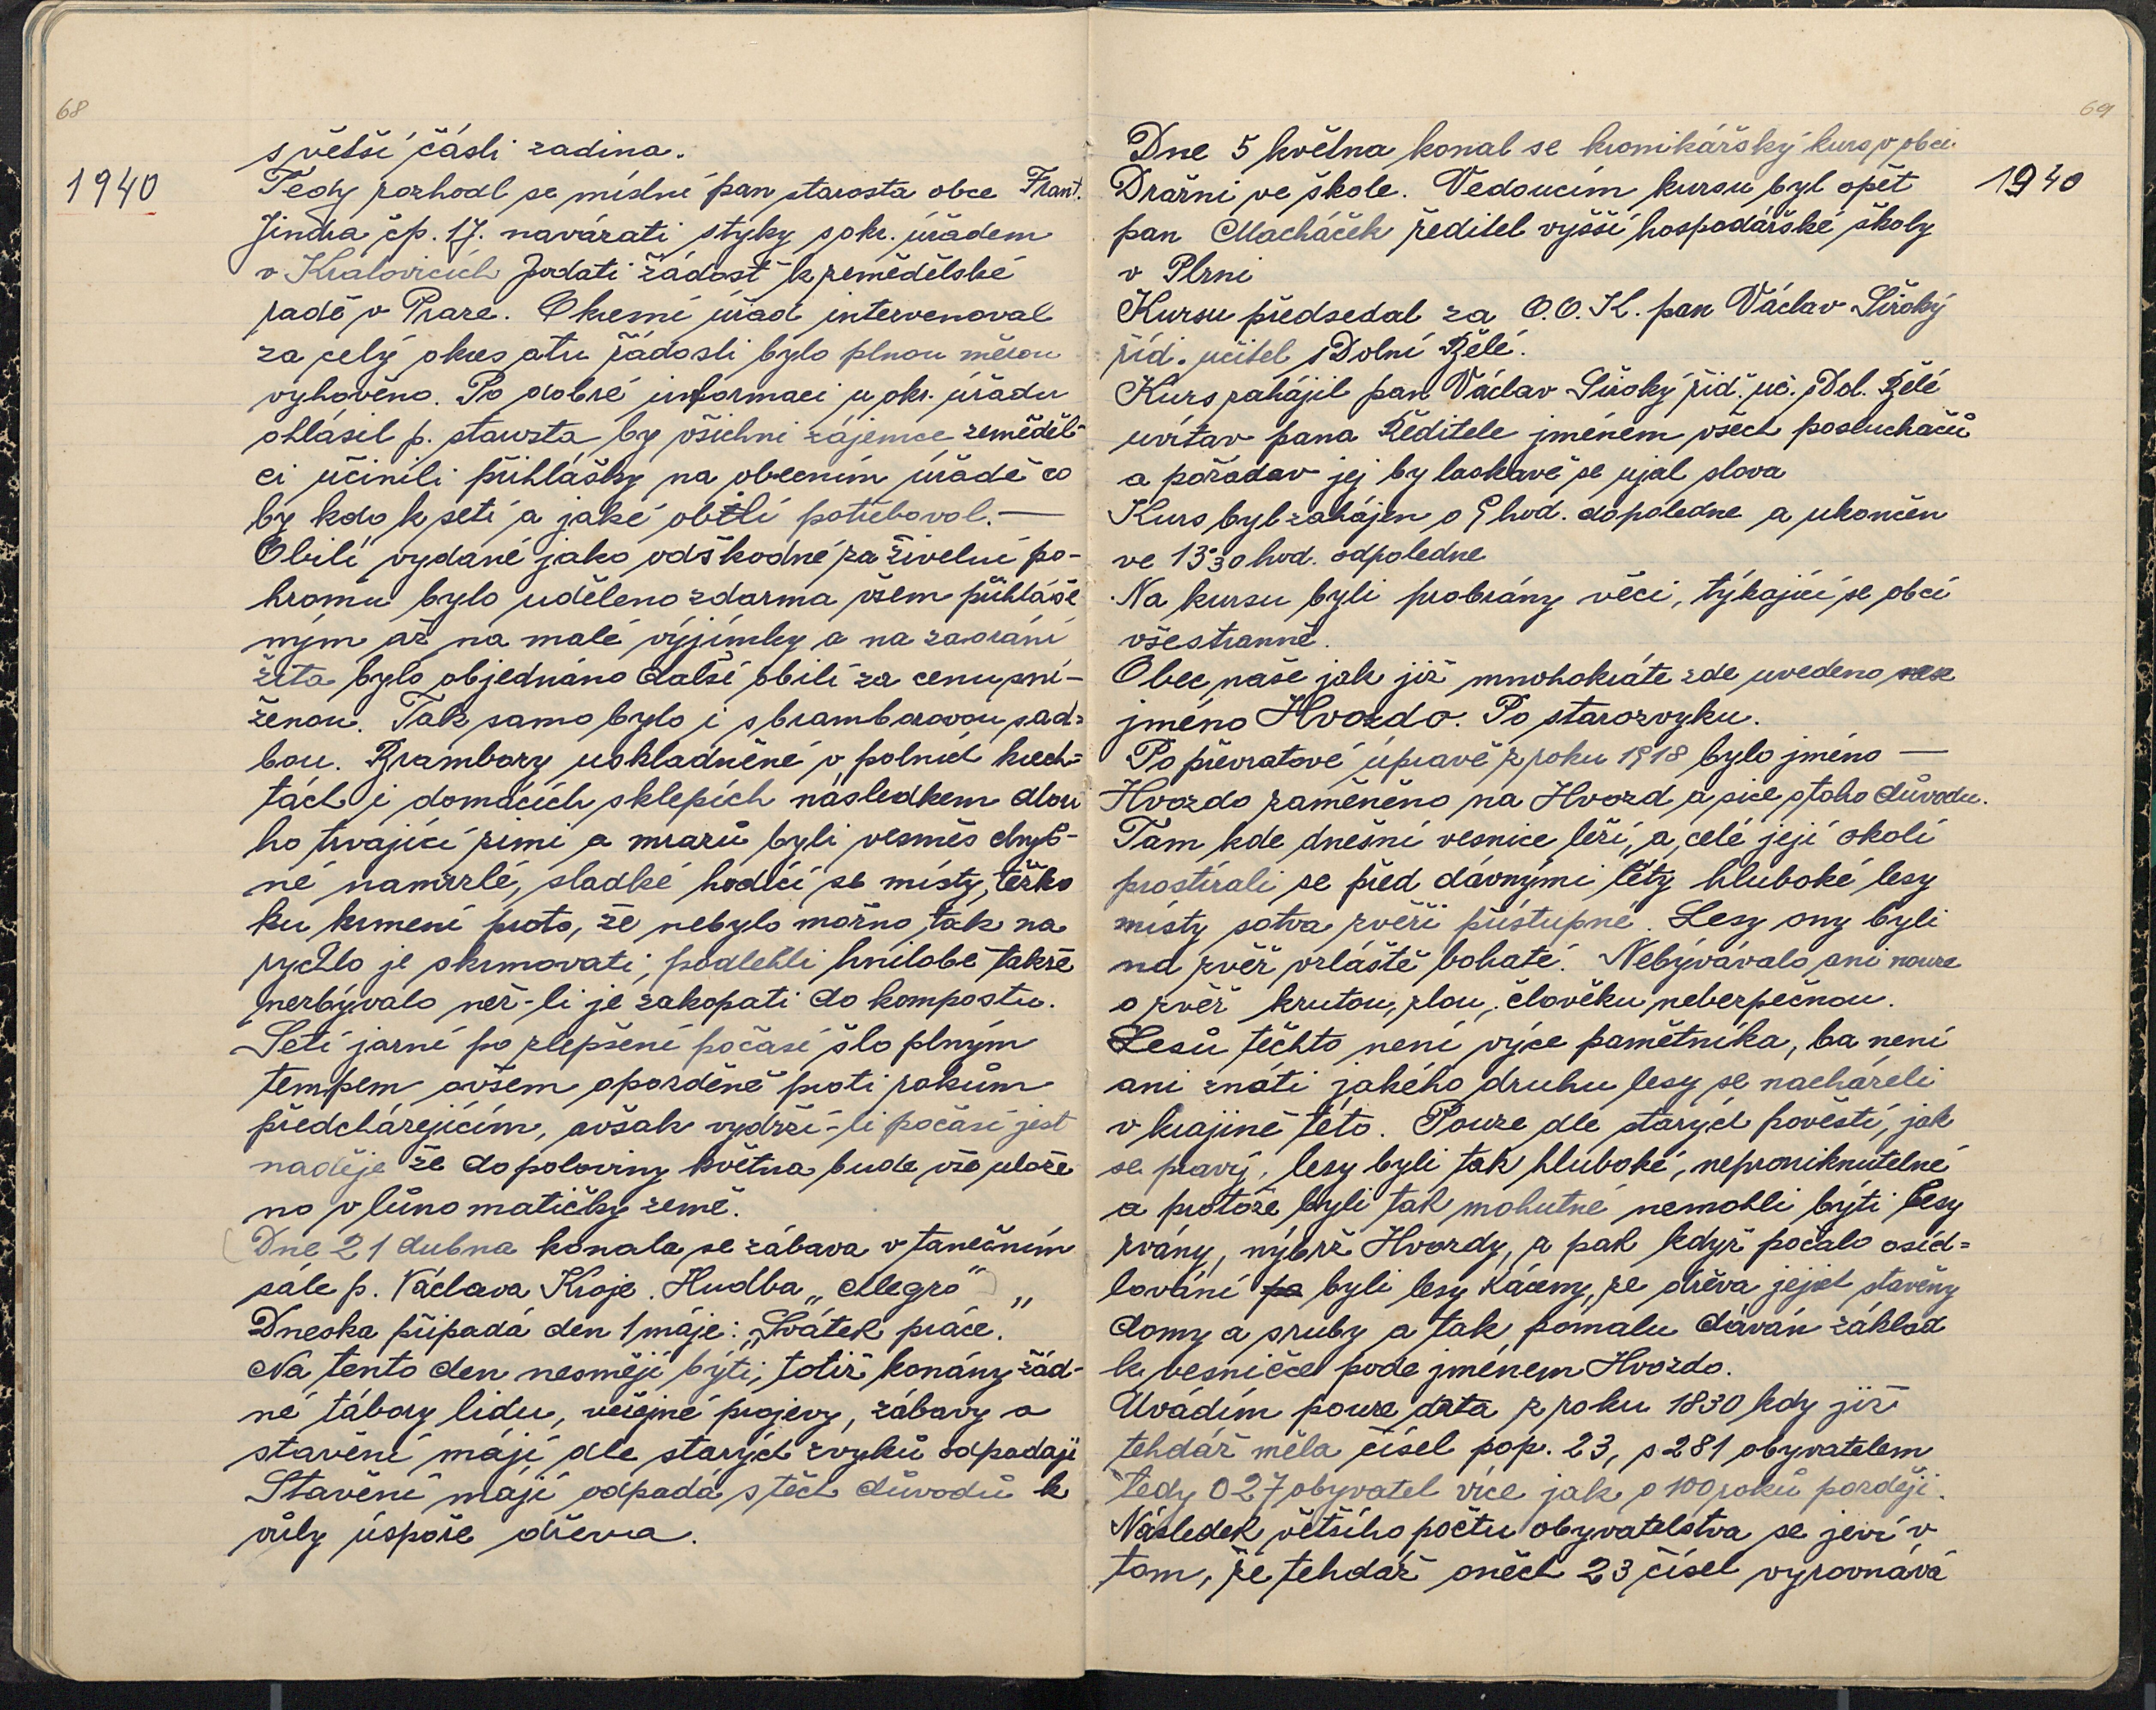 68
1940
s větší části zadina.
Tedy rozhodl se místní pan starosta obce Frant.
Jindra čp. 17. navázati styky s okr. úřadem
v Kralovicích podati žádost k zemědělské
radě v Praze. Okresní úřad intervenoval
za celý okres a tu žádosti bylo plnou měrou
vyhověno. Po dobré informaci u okr. úřadu
ohlásil p. starosta by všichni zájemce zeměděl-
ci učinili přihlášky na obecním úřadě co
by kdo k setí a jaké obilí potřeboval. —
Obilí vydané jako odškodné za živelní po-
hromu bylo uděleno zdarma všem přihláše
ným až na malé výjimky a na zaorání
žita bylo objednáno další obilí za cenu sní-
ženou. Tak samo bylo i s bramborovou sad=
bou. Brambory uskladněné v polních krech=
tách i domácích sklepích následkem dlou
ho trvající zimi a mrazů byli vesměs chyb-
né namrzlé, sladké hodící se místy, těžko
ku krmení proto, že nebylo možno, tak na
rychlo je skrmovati, podlehli hnilobě takže
nezbývalo než-li je zakopati do kompostu.
Setí jarní po zlepšení počasí šlo plným
tempem ovšem opozděně proti rokům
předcházejícím, avšak vydrží-li počasí jest
naděje že do poloviny května bude vše ulože
no v lůno matičky země.
(Dne 21 dubna konala se zábava v tanečním
sále p. Václava Kroje. Hudba „Allegro“)
Dneska připadá den 1 máje: „Svátek práce.“
Na tento den nesmějí býti, totiž konány žád-
né tábory lidu, veřejné projevy, zábavy a
stavění májí dle starých zvyků odpadají
Stavění májí odpadá s těch důvodů k
vůly úspoře dřeva.
69
1940
Dne 5 května konal se kronikářský kurs v obci
Dražni ve škole. Vedoucím kursu byl opět
pan Macháček ředitel vyšší hospodářské školy
v Plzni
Kursu předsedal za O.O.K. pan Václav Široký
říd. učitel s Dolní Bělé.
Kurs zahájil pan Václav Široký říd. uč. s Dol. Bělé
uvítav pana Ředitele jménem všech posluchačů
a požádav jej by laskavě se ujal slova
Kurs byl zahájen o 9 hod. dopoledne a ukončen
ve 13·30 hod. odpoledne
Na kursu byli probrány věci, týkající se obcí
všestranně.
Obec naše jak již mnohokráte zde uvedeno nese
jméno Hvozdo. Po starozvyku.
Po převratové úpravě z roku 1918 bylo jméno —
Hvozdo zaměněno na Hvozd a sice s toho důvodu.
Tam kde dnešní vesnice leží, a celé její okolí
prostírali se před dávnými léty hluboké lesy
místy sotva zvěři přístupné. Lesy ony byli
na zvěř zvláště bohaté. Nebývávalo ani nouze
o zvěř krutou, zlou, člověku nebezpečnou.
Lesů těchto není výce pamětníka, ba není
ani znáti jakého druhu lesy se nacházeli
v krajině této. Pouze dle starých pověstí, jak
se praví, lesy byli tak hluboké, neproniknutelné
a protože byli tak mohutné nemohli býti lesy
zvány, nýbrž Hvozdy, a pak když počalo osíd=
lování byli lesy káceny, ze dřeva jejich stavěny
domy a sruby a tak pomalu dáván základ
k vesničce pode jménem Hvozdo.
Uvádím pouze data z roku 1830 kdy již
tehdáž měla čísel pop. 23, s 281 obyvatelem
tedy o 27 obyvatel více jak o 100 roků později.
Následek většího počtu obyvatelstva se jeví v
tom, že tehdáž oněch 23 čísel vyrovnává